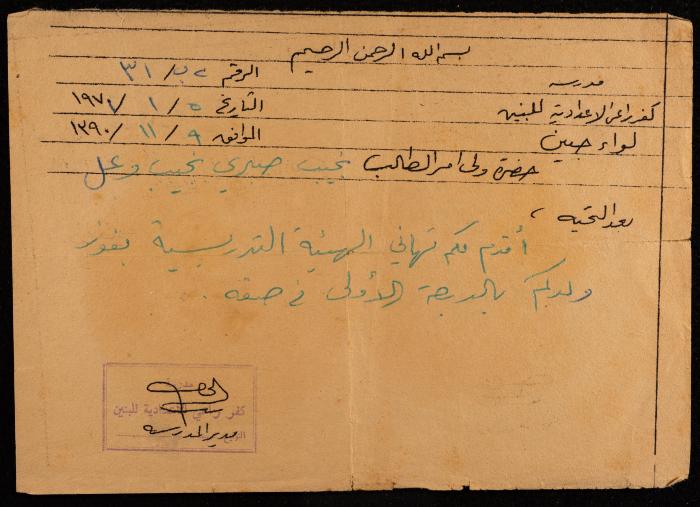 بسم الله الرحمن الرحيم
مدرسة
الرقم ٣١/
كفر راعي الاعدادية للبنين
التاريخ ٥ / ١ / ١٩٧١
لواء جنين
الموافق ٩ / ١١ / ١٣٩٠
حضرة ولي امر الطالب نجيب صبري نجيب
بعد التحية ،
أقدم لكم تهاني الهيئة التدريسية بفوز
ولدكم بالدرجة الأولى في صفه .
كفر راعي الاعدادية للبنين
مدير المدرسة